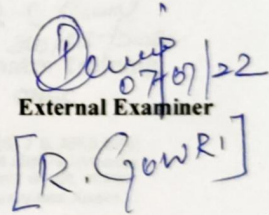 07/07/22
External Examiner
[R. GOWRI]